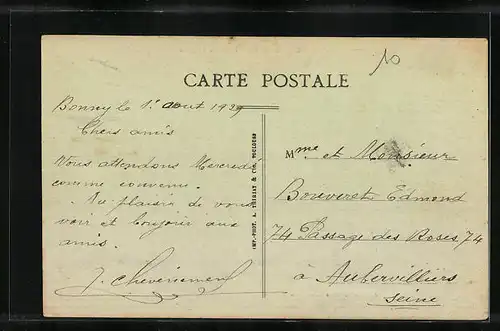 10
CARTE POSTALE
Bonny le 1er août 1929
Chers amis
Vous attendons Mercredi
comme convenu.
Au plaisir de vous
voir et bonjour aux
amis.
J. Chevènement
IMP.-PHOT. A. THIRIAT & Cie, TOULOUSE
Mme et Monsieur
Bouveret Edmond
74 Passage des Roses 74
à Aubervilliers
Seine